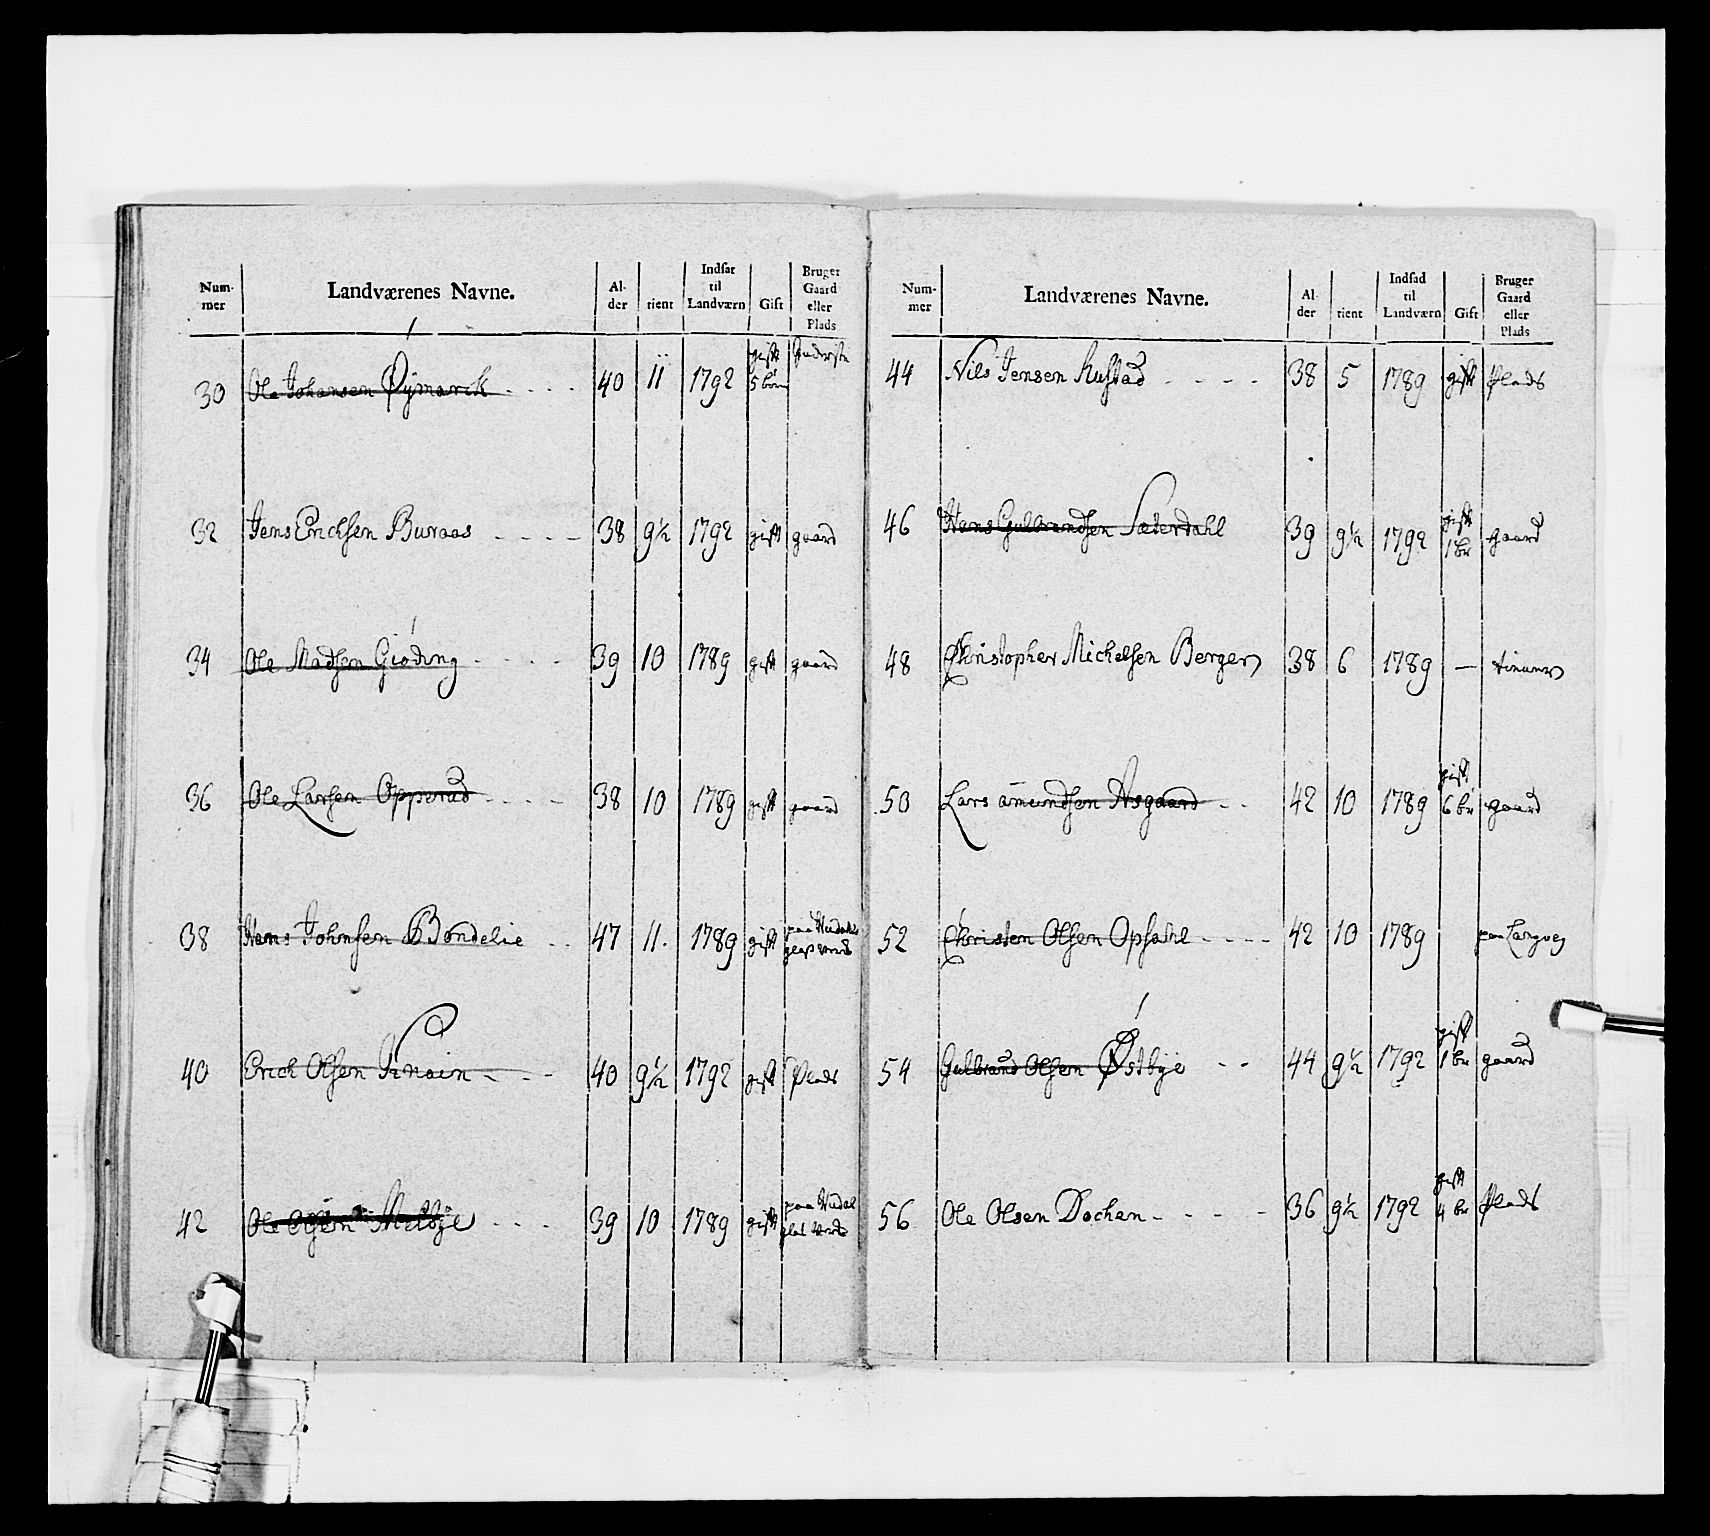 Num- mer | Landværenes Navne. | Al- der | tient | Indsat til Landværn | Gift | Bruger Gaard eller Plads
30 Ole Johansen Øymarck 40 11 1792 gift 5 børn Inderste
32 Jens Erichsen Buraas 38 9½ 1792 gift gaard
34 Ole Madsen Giøding 39 10 1789 gift gaard
36 Ole Larsen Opperud 38 10 1789 gift gaard
38 Hans Johnsen Bøndelie 47 11. 1789 gift paa Hudahls glas værk
40 Erich Olsen Knain 40 9½ 1792 gift Plads
42 Ole Olsen Melbye 39 10 1789 gift paa Hudal glas værk
Num- mer | Landværenes Navne. | Al- der | tient | Indsad til Landværn | Gift | Bruger Gaard eller Plads
44 Nils Jensen Rustad 38 5 1789 gift Plads
46 Hans Gulbrandsen Sæterdahl 39 9½ 1792 gift 1 br gaard
48 Christopher Michelsen Berger 38 6 1789 — tienner
50 Lars amundsen Asgaard 42 10 1789 gift 6 br gaard
52 Christen Olsen Opsahl 42 10 1789 paa Langveg
54 Gulbrand Olsen Østbye 44 9½ 1792 gift 1 br gaard
56 Ole Olsen Dochen 36 9½ 1792 gift 4 br Plads